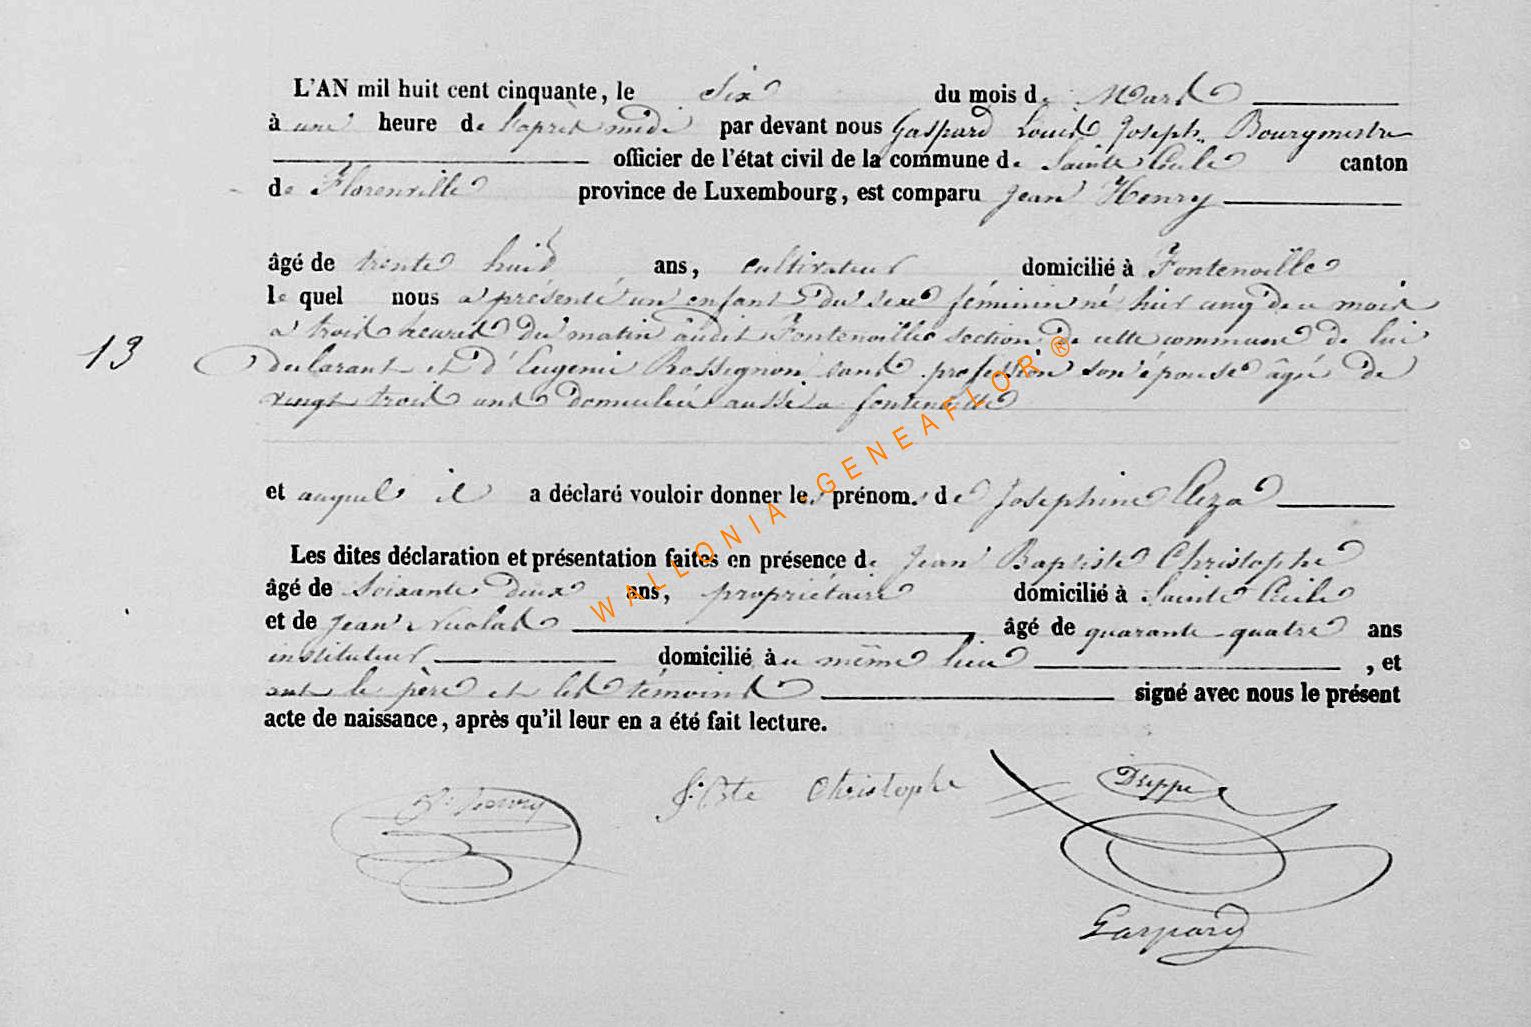 L'AN mil huit cent cinquante, le Six du mois de Mars
à une heure de l'après midi par devant nous Gaspard Louis Joseph Bourgmestre
officier de l'état civil de la commune de Sainte Cécile canton
de Florenville province de Luxembourg, est comparu Jean Henry
âgé de trente huit ans, cultivateur domicilié à Fontenoille
le quel nous a présenté un enfant du sexe féminin né hier cinq de ce mois
13
a trois heures du matin audit Fontenoille section de cette commune de lui
declarant et d'Eugenie Rossignon sans profession son épouse âgée de
vingt trois ans domiciliée aussi a fontenoille
et auquel il a déclaré vouloir donner les prénoms de Josephine
Les dites déclaration et présentation faites en présence de Jean Baptiste Christophe
âgé de Soixante deux ans, propriétaire domicilié à Sainte Cécile
et de Jean Nicolas âgé de quarante quatre ans
instituteur domicilié au même lieu , et
ont le père et les témoins signé avec nous le présent
acte de naissance, après qu'il leur en a été fait lecture.
J. Henry J. Bte Christophe
Gaspard
WALLONIA-GENEAFLOR ®